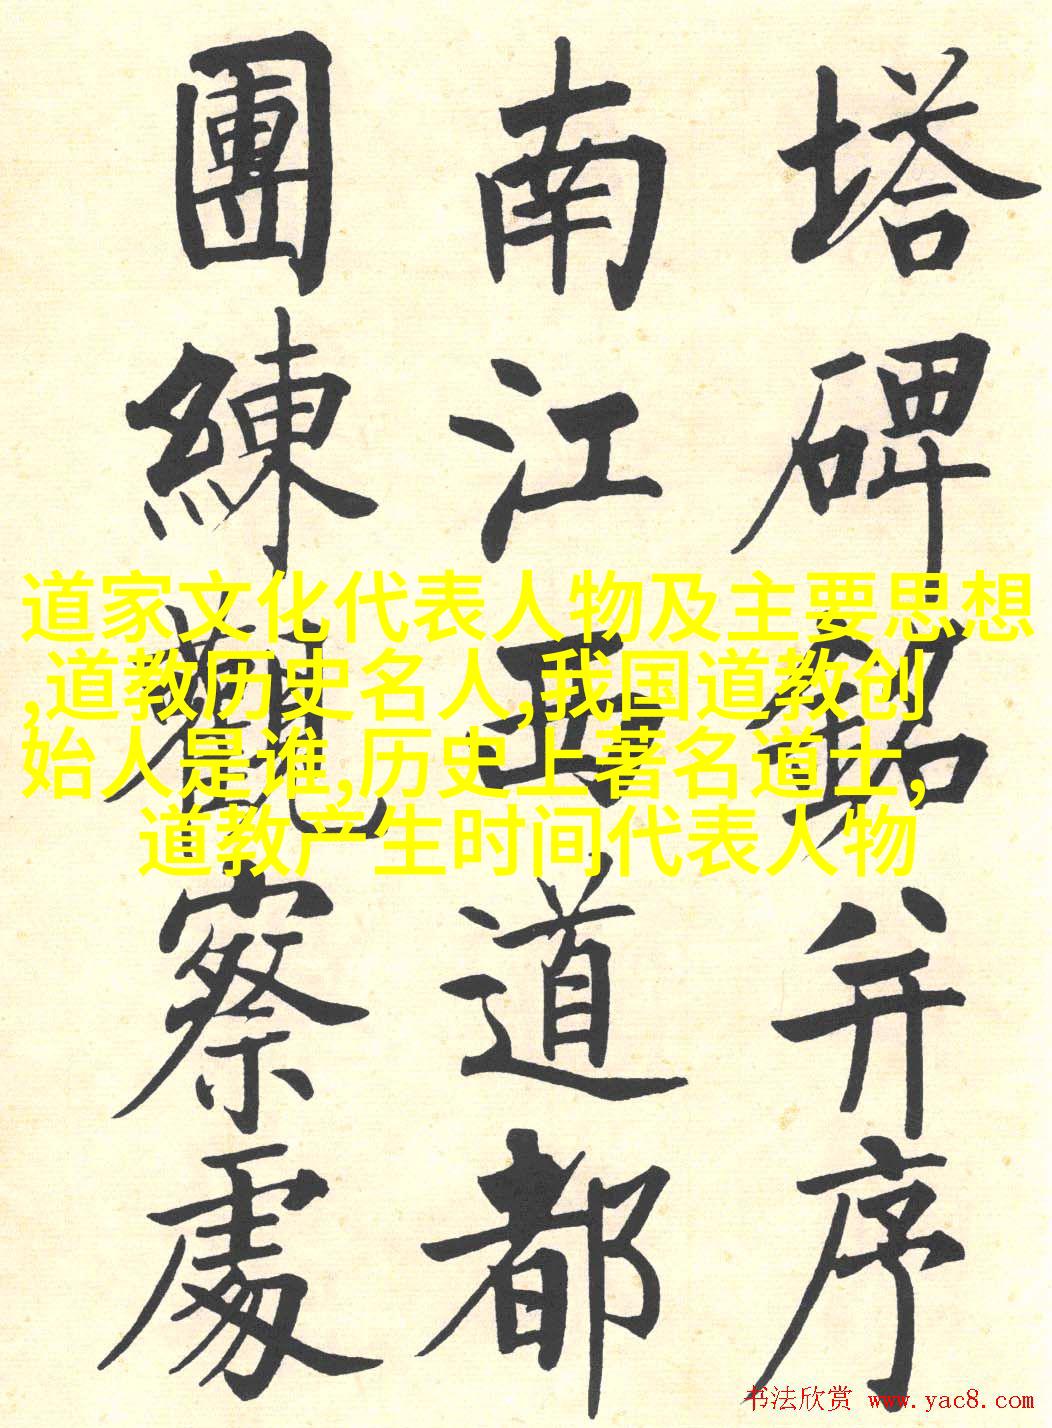 塔碑銘并序
南江西道都
團練觀察處
道家文化代表人物及主要思想
,道教历史名人,我国道教创
始人是谁,历史上著名道士,
道教产生时间代表人物
书法欣赏 www.yac8.com